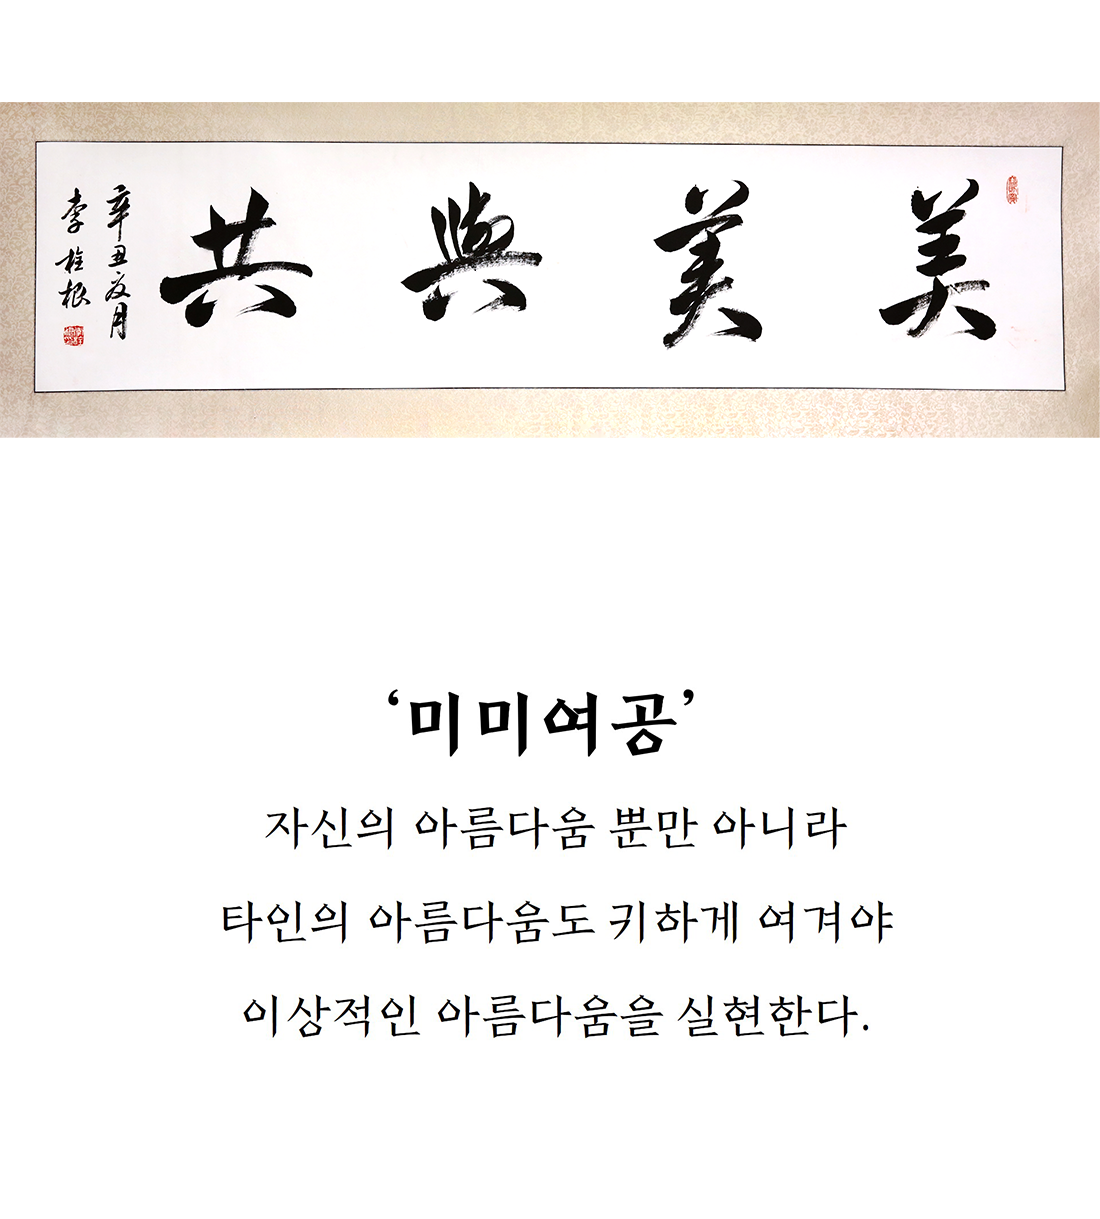 美美與共
辛丑夏月
李 根
‘미미여공’
자신의 아름다움 뿐만 아니라
타인의 아름다움도 키하게 여겨야
이상적인 아름다움을 실현한다.